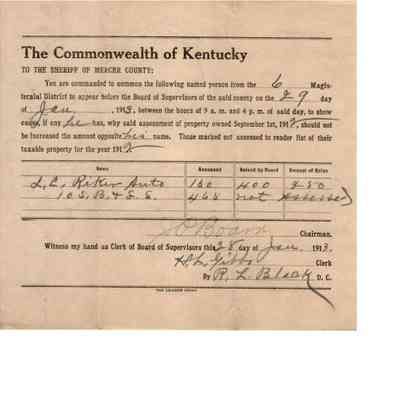 The Commonwealth of Kentucky
TO THE SHERIFF OF MERCER COUNTY:
You are commanded to summon the following named person from the 6 Magis-
terial District to appear before the Board of Supervisors of the said county on the 29 day
of Jan, 1913, between the hours of 9 a.m. and 4 p.m. of said day, to show
cause, if any he has, why said assessment of property owned September 1st, 1912, should not
be increased the amount opposite his name. Those marked not assessed to render list of their
taxable property for the year 1912
Name Assessed Raised by Board Amount of Raise
L. C. Riker Auto 150 400 250
10 S. B. & S. S. 465 not Assessed
Chairman.
Witness my hand as Clerk of Board of Supervisors this 28 day of Jan, 1913.
Gibbs Clerk
By R. L. Black D. C.